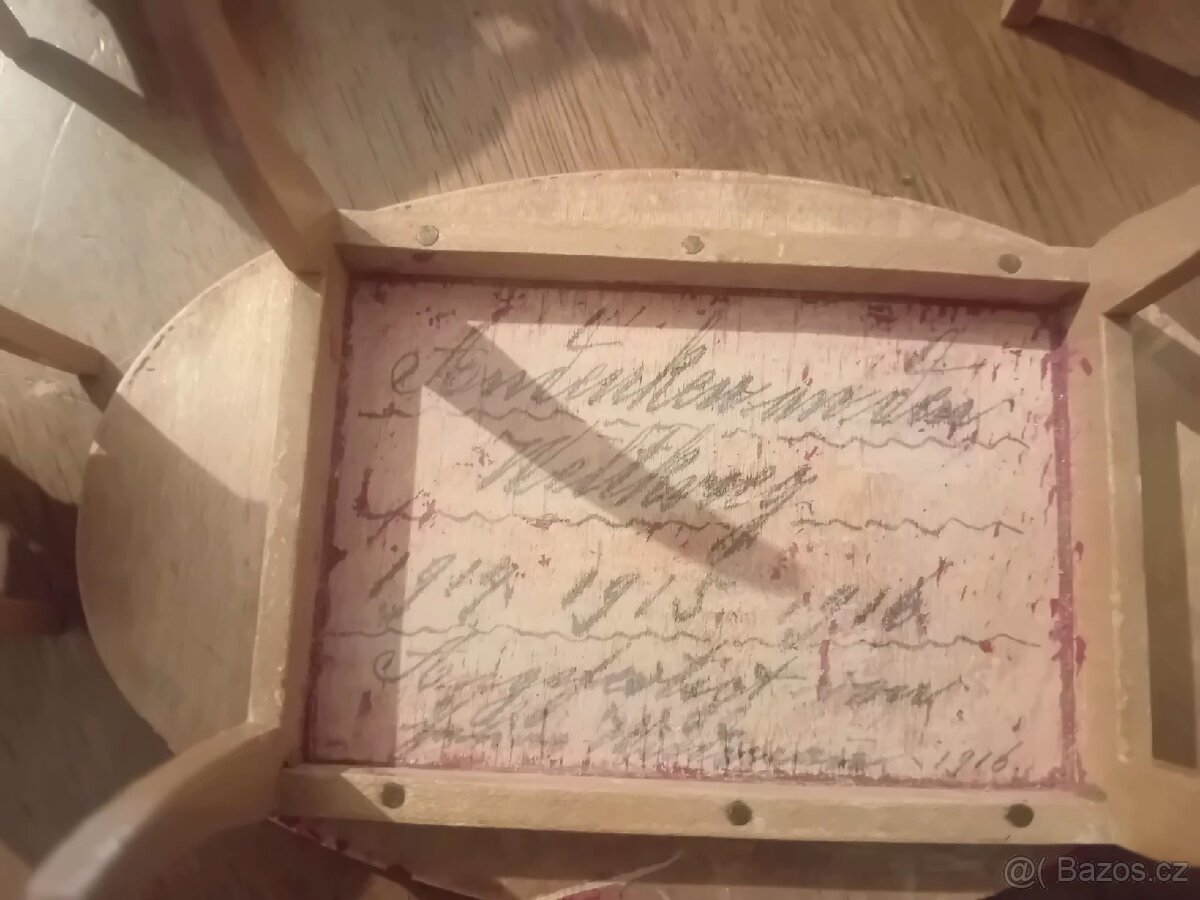 Andenken an den
Weltkrieg
1914. 1915. 1916
Angefertigt von
1916
@( Bazos.cz